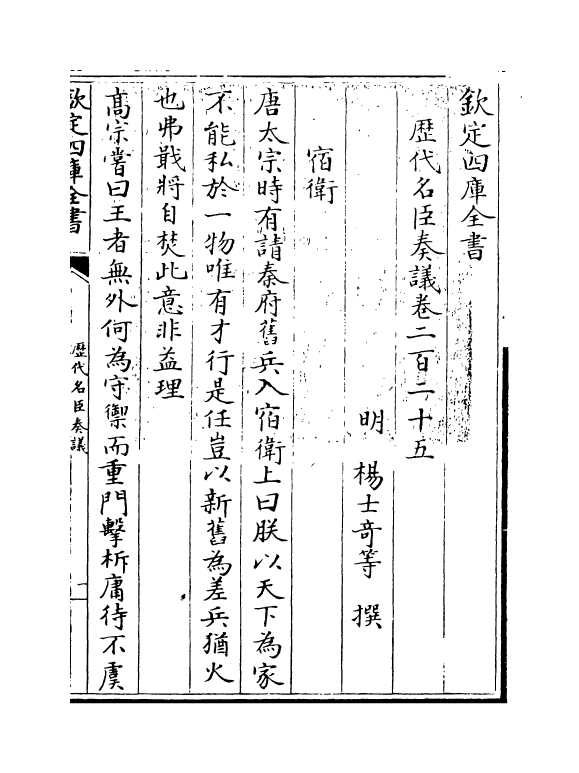 欽定四庫全書
歴代名臣奏議卷二百二十五
明 楊士奇等 撰
宿衛
唐太宗時有請秦府舊兵入宿衛上曰朕以天下為家
不能私於一物唯有才行是任豈以新舊為差兵猶火
也弗戢將自焚此意非益理
髙宗嘗曰王者無外何為守禦而重門擊柝庸待不虞
欽定四庫全書
歴代名臣奏議
一